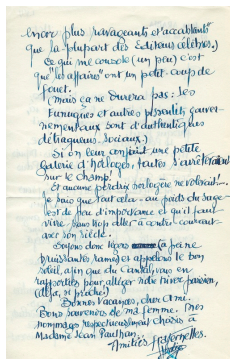 encor plus ravageants et accablants
que la plupart des Editeurs célèbres.)
Ce qui me console (un peu) c'est
que "les affaires" ont un petit coup de
fouet.
(Mais ça ne durera pas : les
Eunuques et autres pissenlits gouver-
nementaux sont d'authentiques
détraqueurs sociaux.)
Si on leur confiait une petite
Galerie d'Horloges, toutes s'arrêteraient
sur le champ!
Et aucune perdrix ne volerait!...
Je sais que tout cela au poids du sage
est de peu d'importance et qu'il faut
vivre sans trop aller à contre-courant
avec son siècle.
Soyons donc légers
puissantes rames et appelons le bon
soleil, afin que du Cantal vous en
rapportiez pour alléger notre hiver parisien,
(déjà, si proche!)
Bonnes Vacances, cher Ami.
Bons souvenirs de ma femme. Mes
hommages respectueusement choisis à
Madame Jean Paulhan.
Amitiés fraternelles.